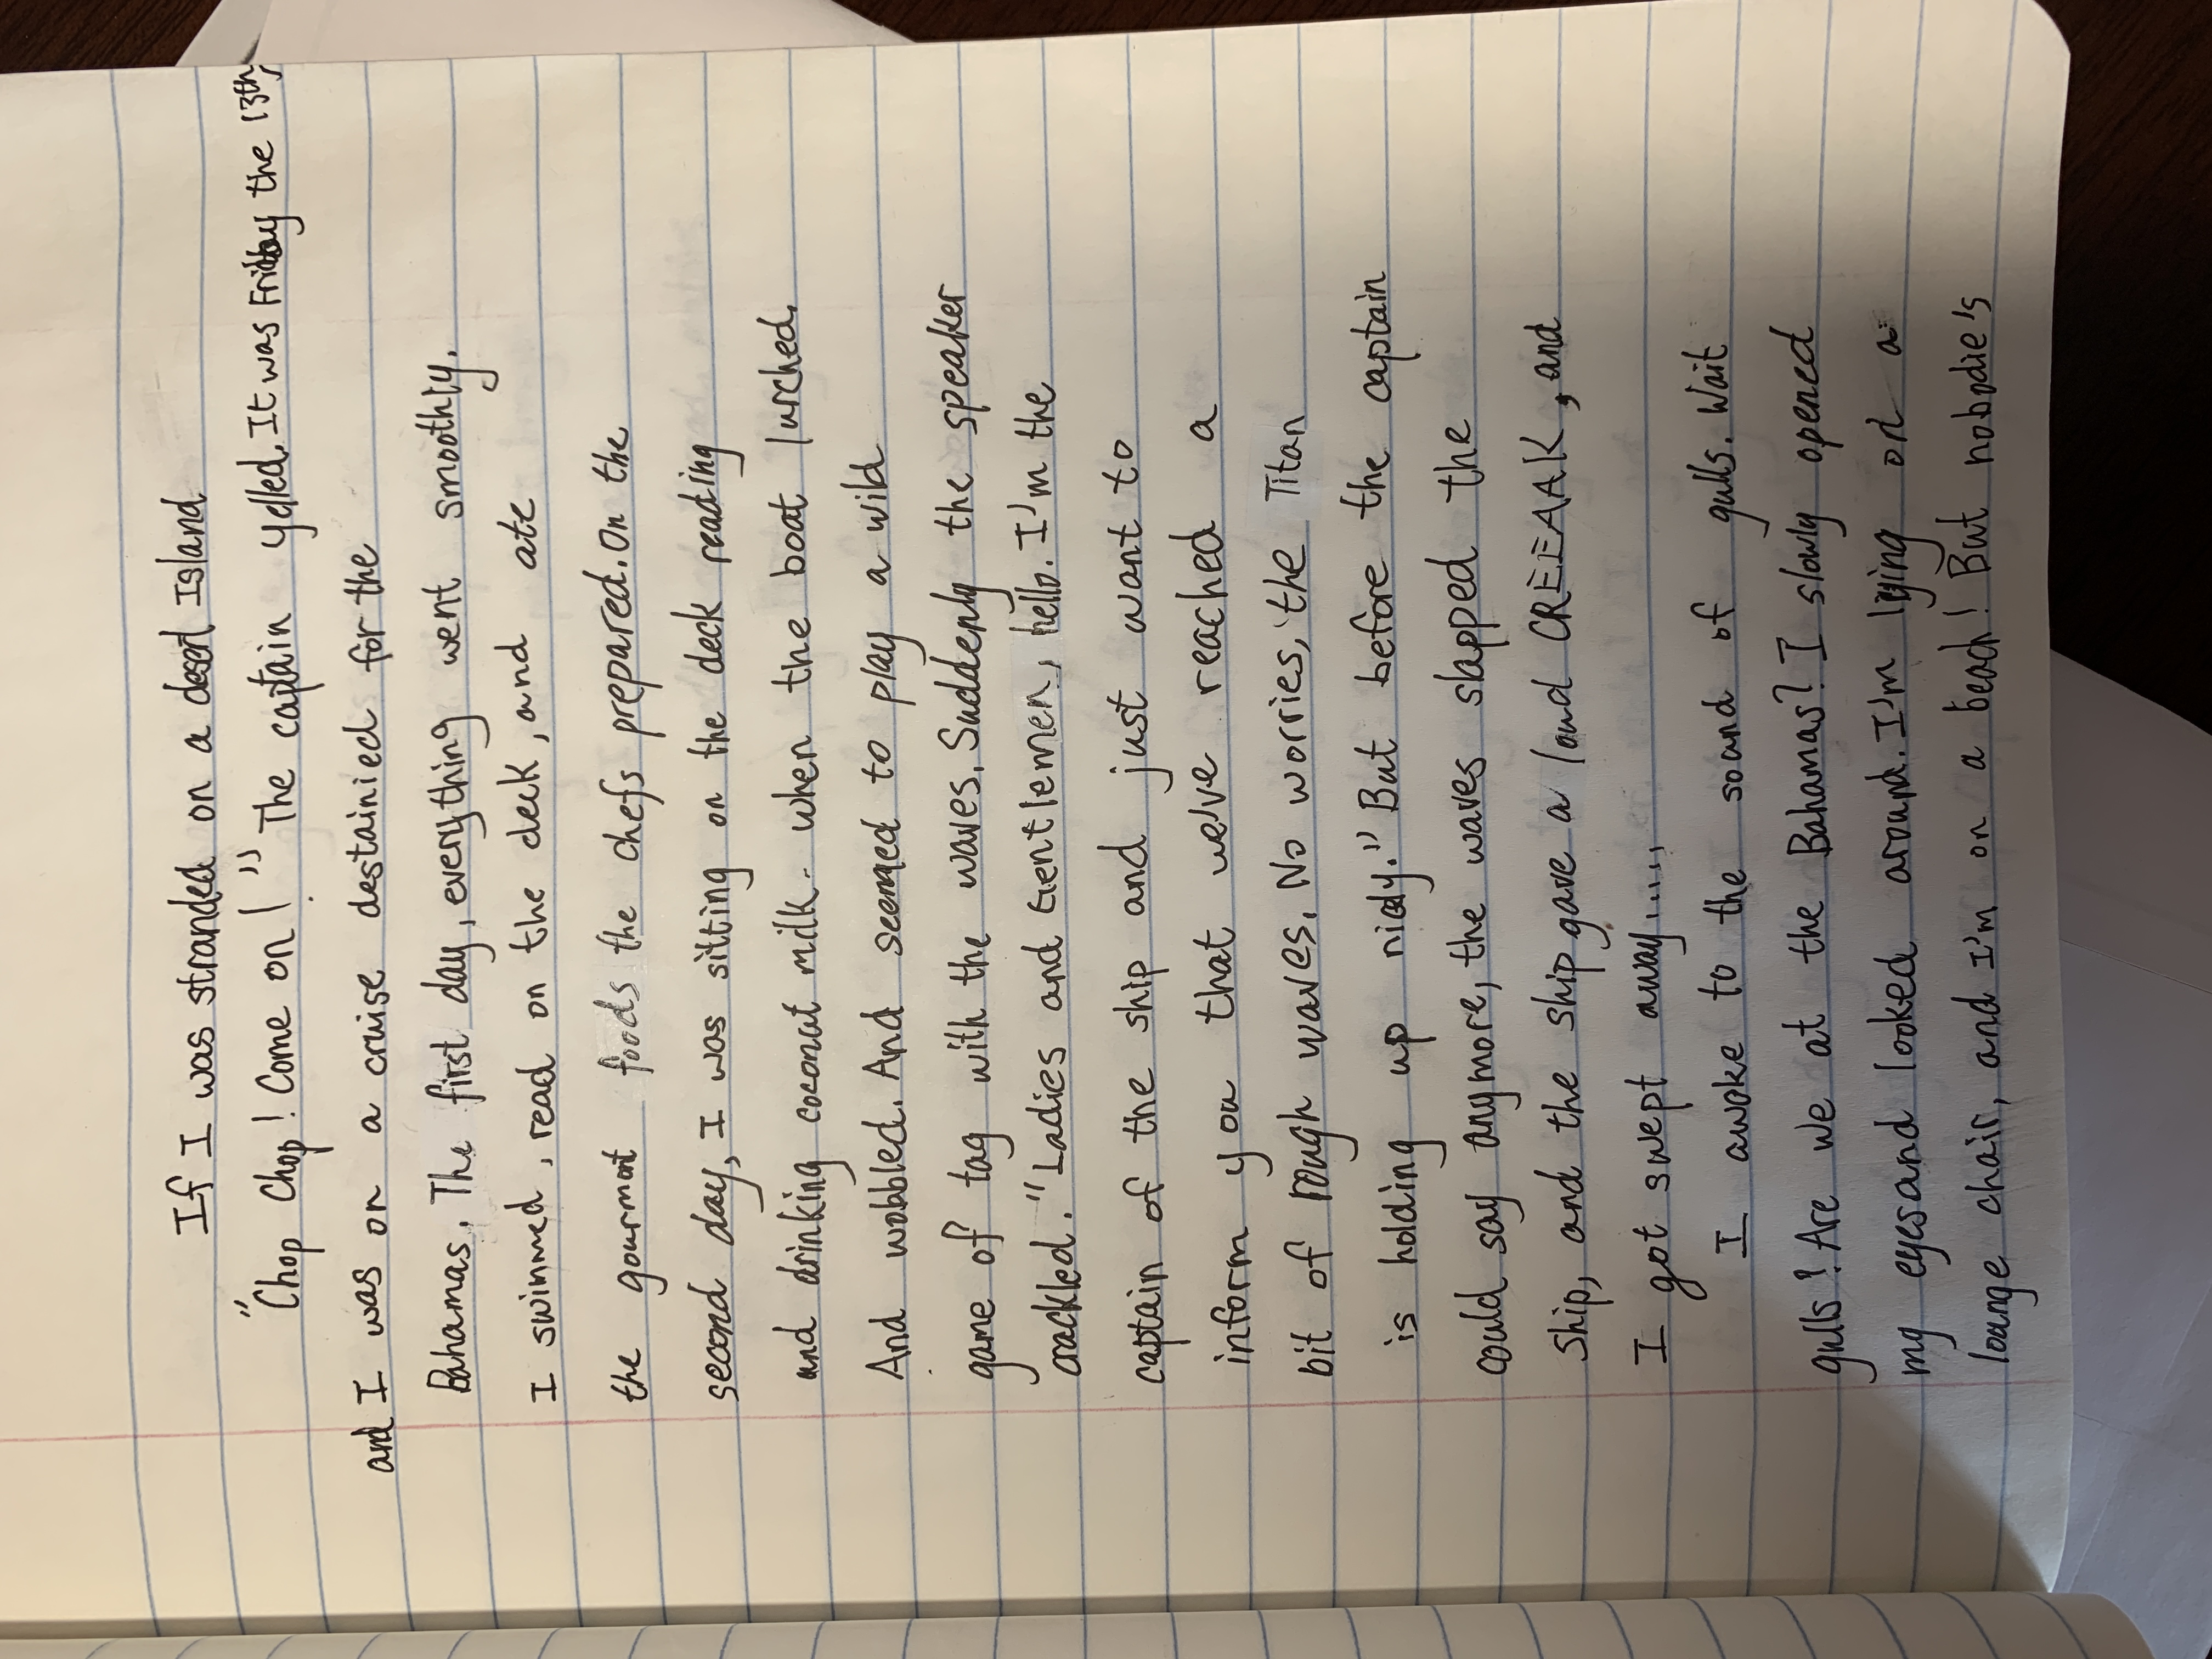 If I was stranded on a desert Island
"Chop Chop! Come on!" The captain yelled. It was Friday the 13th,
and I was on a cruise destainied for the
Bahamas. The first day, everything went smoothly.
I swimmed, read on the deck, and ate
the gourmont foods the chefs prepared. On the
second day, I was sitting on the deck reading
and drinking coconut milk - when the boat lurched.
And wobbled. And seemed to play a wild
game of tag with the waves. Suddenly the speaker
crackled. "Ladies and Gentlemen, hello. I'm the
captain of the ship and just want to
inform you that we've reached a
bit of rough waves. No worries, the Titan
is holding up nicely." But before the captain
could say anymore, the waves slapped the
ship, and the ship gave a loud CREEAAK, and
I got swept away.....
I awoke to the sound of gulls. Wait
gulls? Are we at the Bahamas? I slowly opened
my eyes and looked around. I'm lying on a
lounge chair, and I'm on a beach! But nobodie's